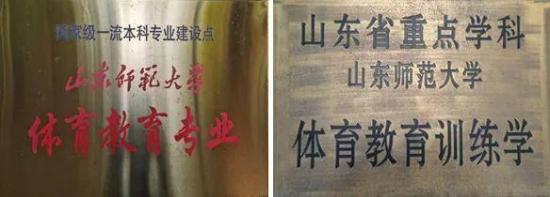 国家级一流本科专业建设点
山东师范大学
体育教育专业
山东省重点学科
山东师范大学
体育教育训练学